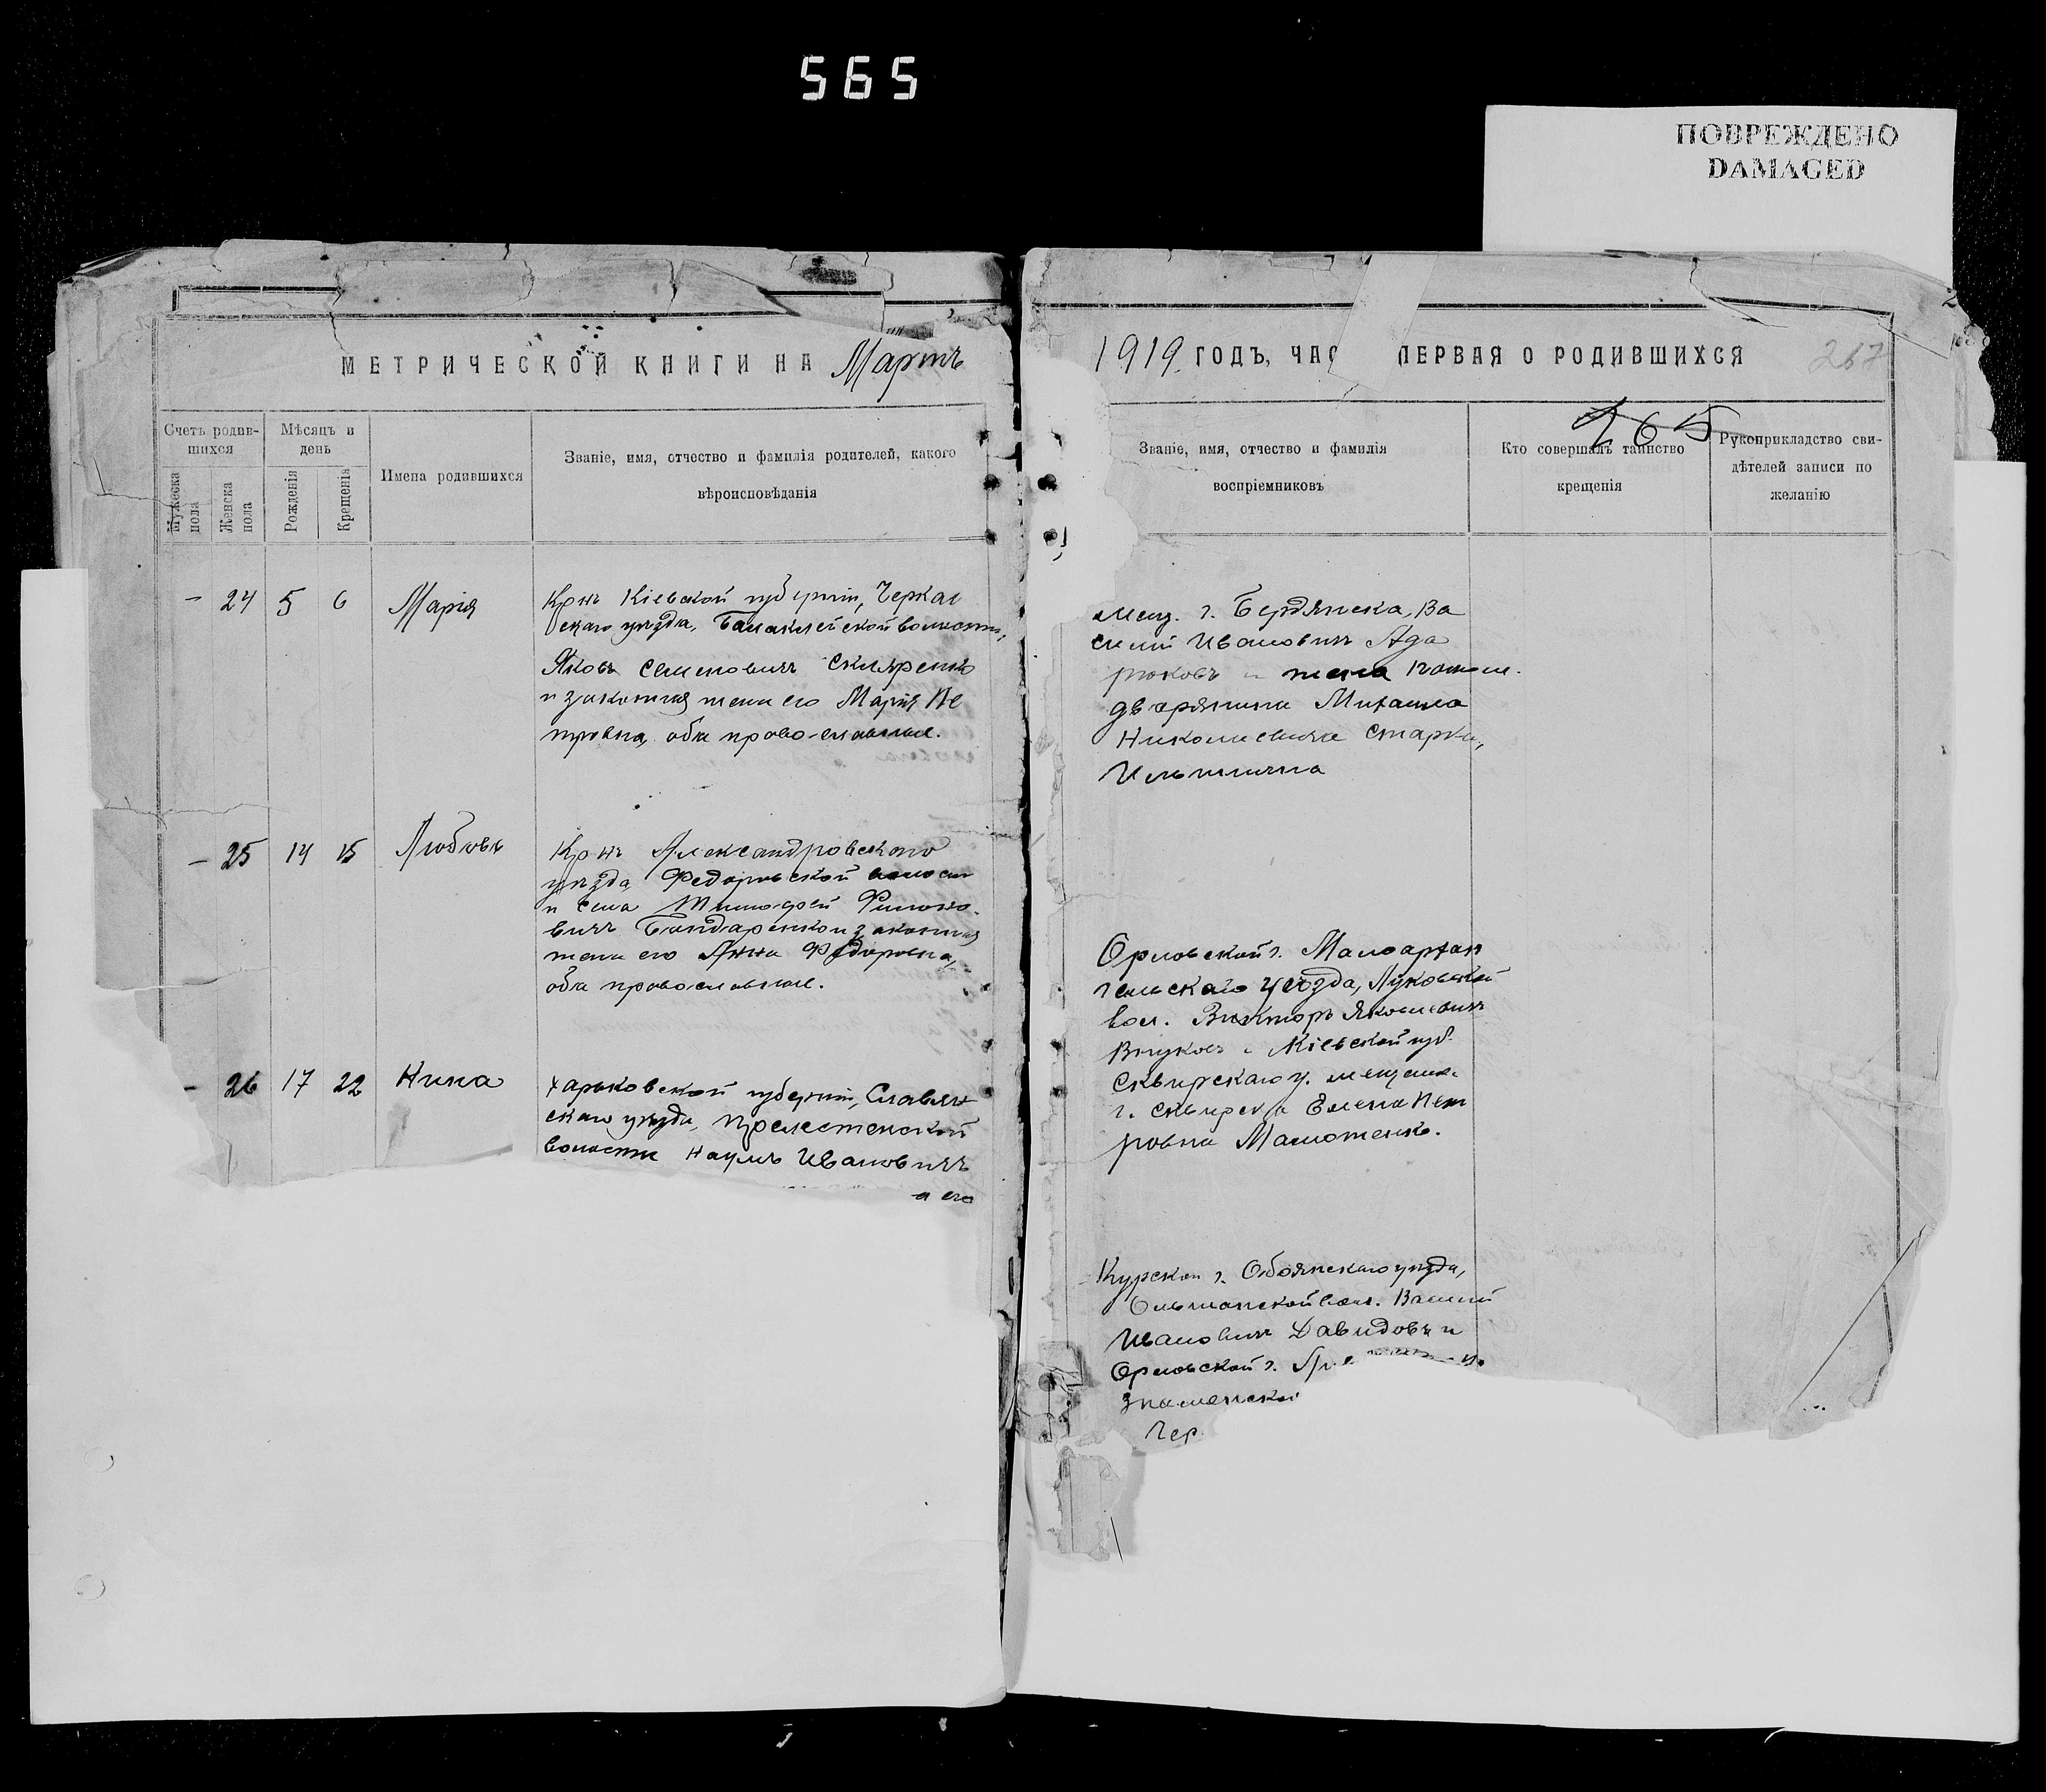 565
ПОВРЕЖДЕНО
DAMAGED
МЕТРИЧЕСКОЙ КНИГИ НА Мартъ
1919 ГОДЪ, ЧАС ПЕРВАЯ О РОДИВШИХСЯ 267
265
Счетъ родив-
шихся
Мужеска
пола
Женска
пола
Мѣсяцъ и
день
Рожденія
Крещенія
Имена родившихся
Званіе, имя, отчество и фамилія родителей, какого
вѣроисповѣданія
Званіе, имя, отчество и фамилія
воспріемниковъ
Кто совершалъ таинство
крещенія
Рукоприкладство сви-
дѣтелей записи по
желанію
- 24 5 6 Марія
Крнъ Кіевской губерніи, Черкас
скаго уѣзда, Балаклейской волости,
Яковъ Семеновичъ Скляренко
и законная жена его Марія Пе
тровна, оба право-славные.
мещ. г. Бердянска, Ва
силий Ивановичъ Ада
рюковъ и жена потом.
дворянина Михаила
Николаевича Старки,
- 25 14 15 Любовь
Крнъ Александровскаго
уѣзда, Федоровской волост
и села Тимофей Филимо-
вичъ Бондаренко и законная
жена его Анна Федоровна,
оба православные.
Орловской г. Малоархан
гельскаго уѣзда, Луковской
вол. Викторъ Яковлевичъ
Внуковъ и Кіевской губ.
Сквирскаго у. мещанка
г. Сквирска Елена Пет
ровна
- 26 17 22 Нина
Харьковской губерніи, Славян
скаго уѣзда, Прелестенской
волости Наумъ Ивановичъ
а его
Курской г. Обоянскаго уѣзда,
Ольшанской вол. Василий
Ивановичъ Давидовъ и
Орловской г.
Знаменской
Чер